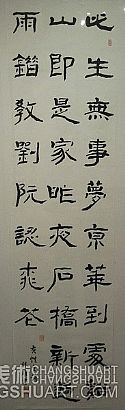 此生無事夢京華到處名
山即是家昨夜石橋新過
雨錯教劉阮認桃花
CHANGSHUART.COM